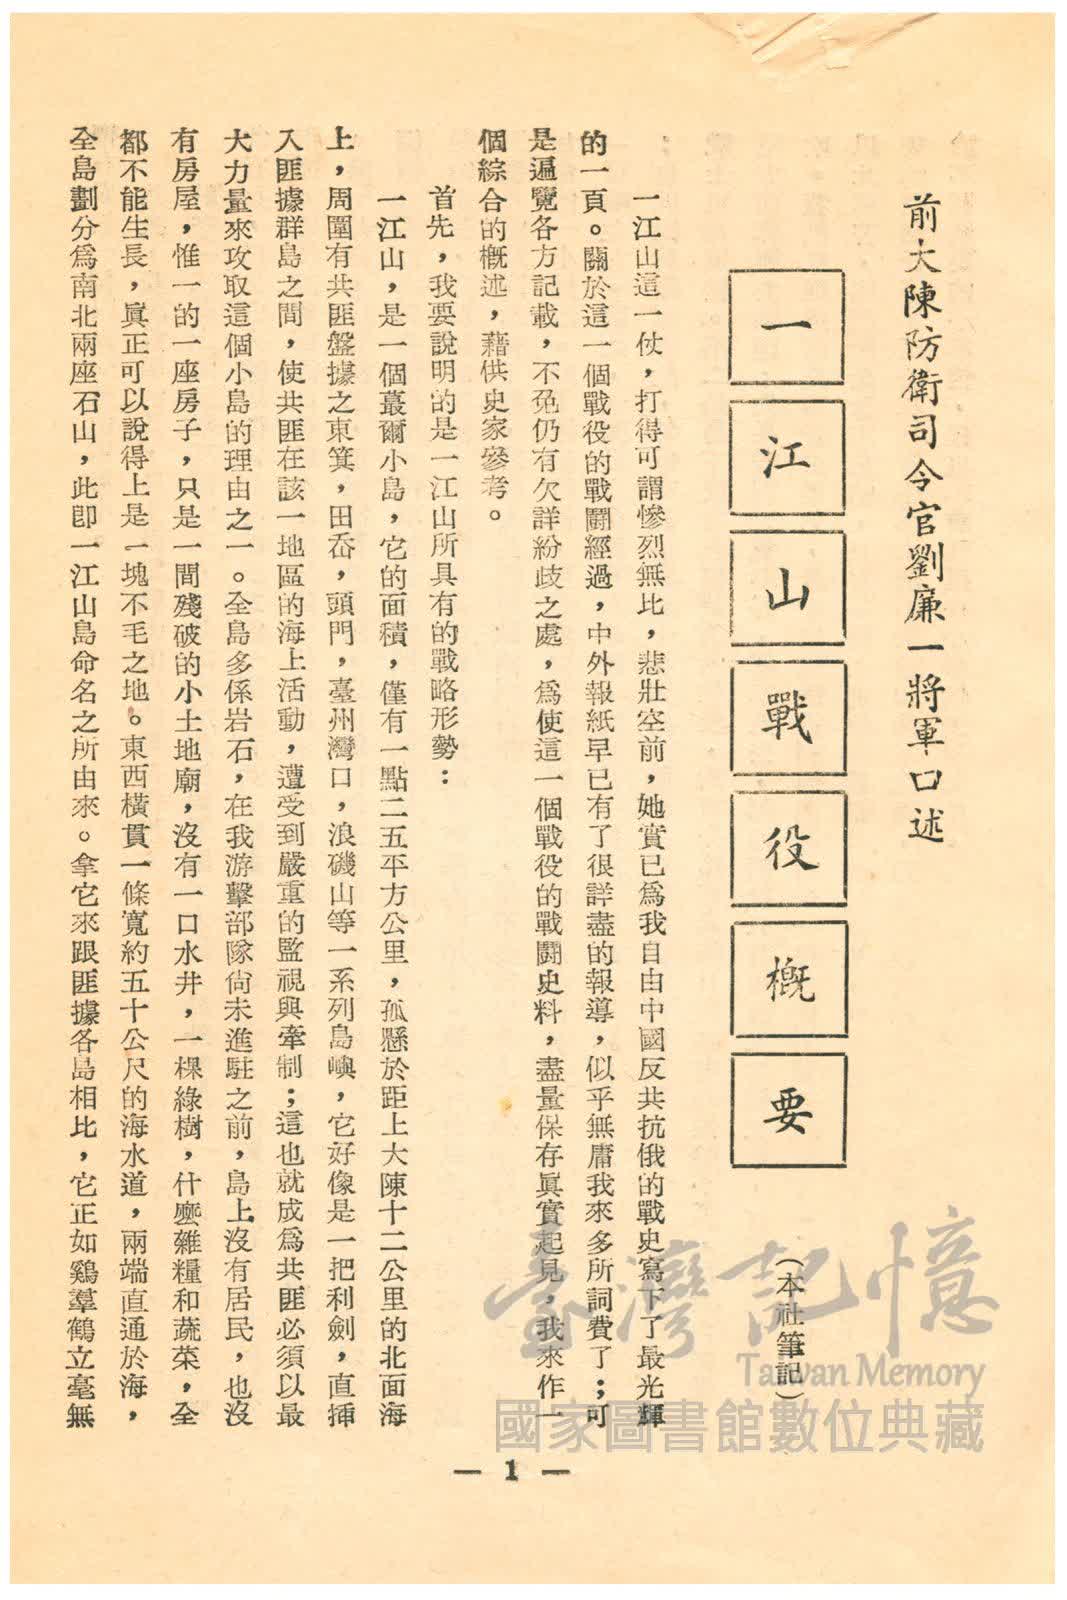 前大陳防衛司令官劉廉一將軍口述
一江山戰役概要
（本社筆記）
一江山這一仗，打得可謂慘烈無比，悲壯空前，她實已爲我自由中國反共抗俄的戰史寫下了最光輝
的一頁。關於這一個戰役的戰鬭經過，中外報紙早已有了很詳盡的報導，似乎無庸我來多所詞費了；可
是遍覽各方記載，不免仍有欠詳紛歧之處，爲使這一個戰役的戰鬭史料，盡量保存眞實起見，我來作一
個綜合的概述，藉供史家參考。
首先，我要說明的是一江山所具有的戰略形勢：
一江山，是一個蕞爾小島，它的面積，僅有一點二五平方公里，孤懸於距上大陳十二公里的北面海
上，周圍有共匪盤據之東箕，田岙，頭門，臺州灣口，浪磯山等一系列島嶼，它好像是一把利劍，直揷
入匪據群島之間，使共匪在該一地區的海上活動，遭受到嚴重的監視與牽制；這也就成爲共匪必須以最
大力量來攻取這個小島的理由之一。全島多係岩石，在我游擊部隊尙未進駐之前，島上沒有居民，也沒
有房屋，惟一的一座房子，只是一間殘破的小土地廟，沒有一口水井，一棵綠樹，什麼雜糧和蔬菜，全
都不能生長，眞正可以說得上是一塊不毛之地。東西橫貫一條寬約五十公尺的海水道，兩端直通於海，
全島劃分爲南北兩座石山，此卽一江山島命名之所由來。拿它來跟匪據各島相比，它正如鷄羣鶴立毫無
— 1 —
臺灣記憶
Taiwan Memory
國家圖書館數位典藏